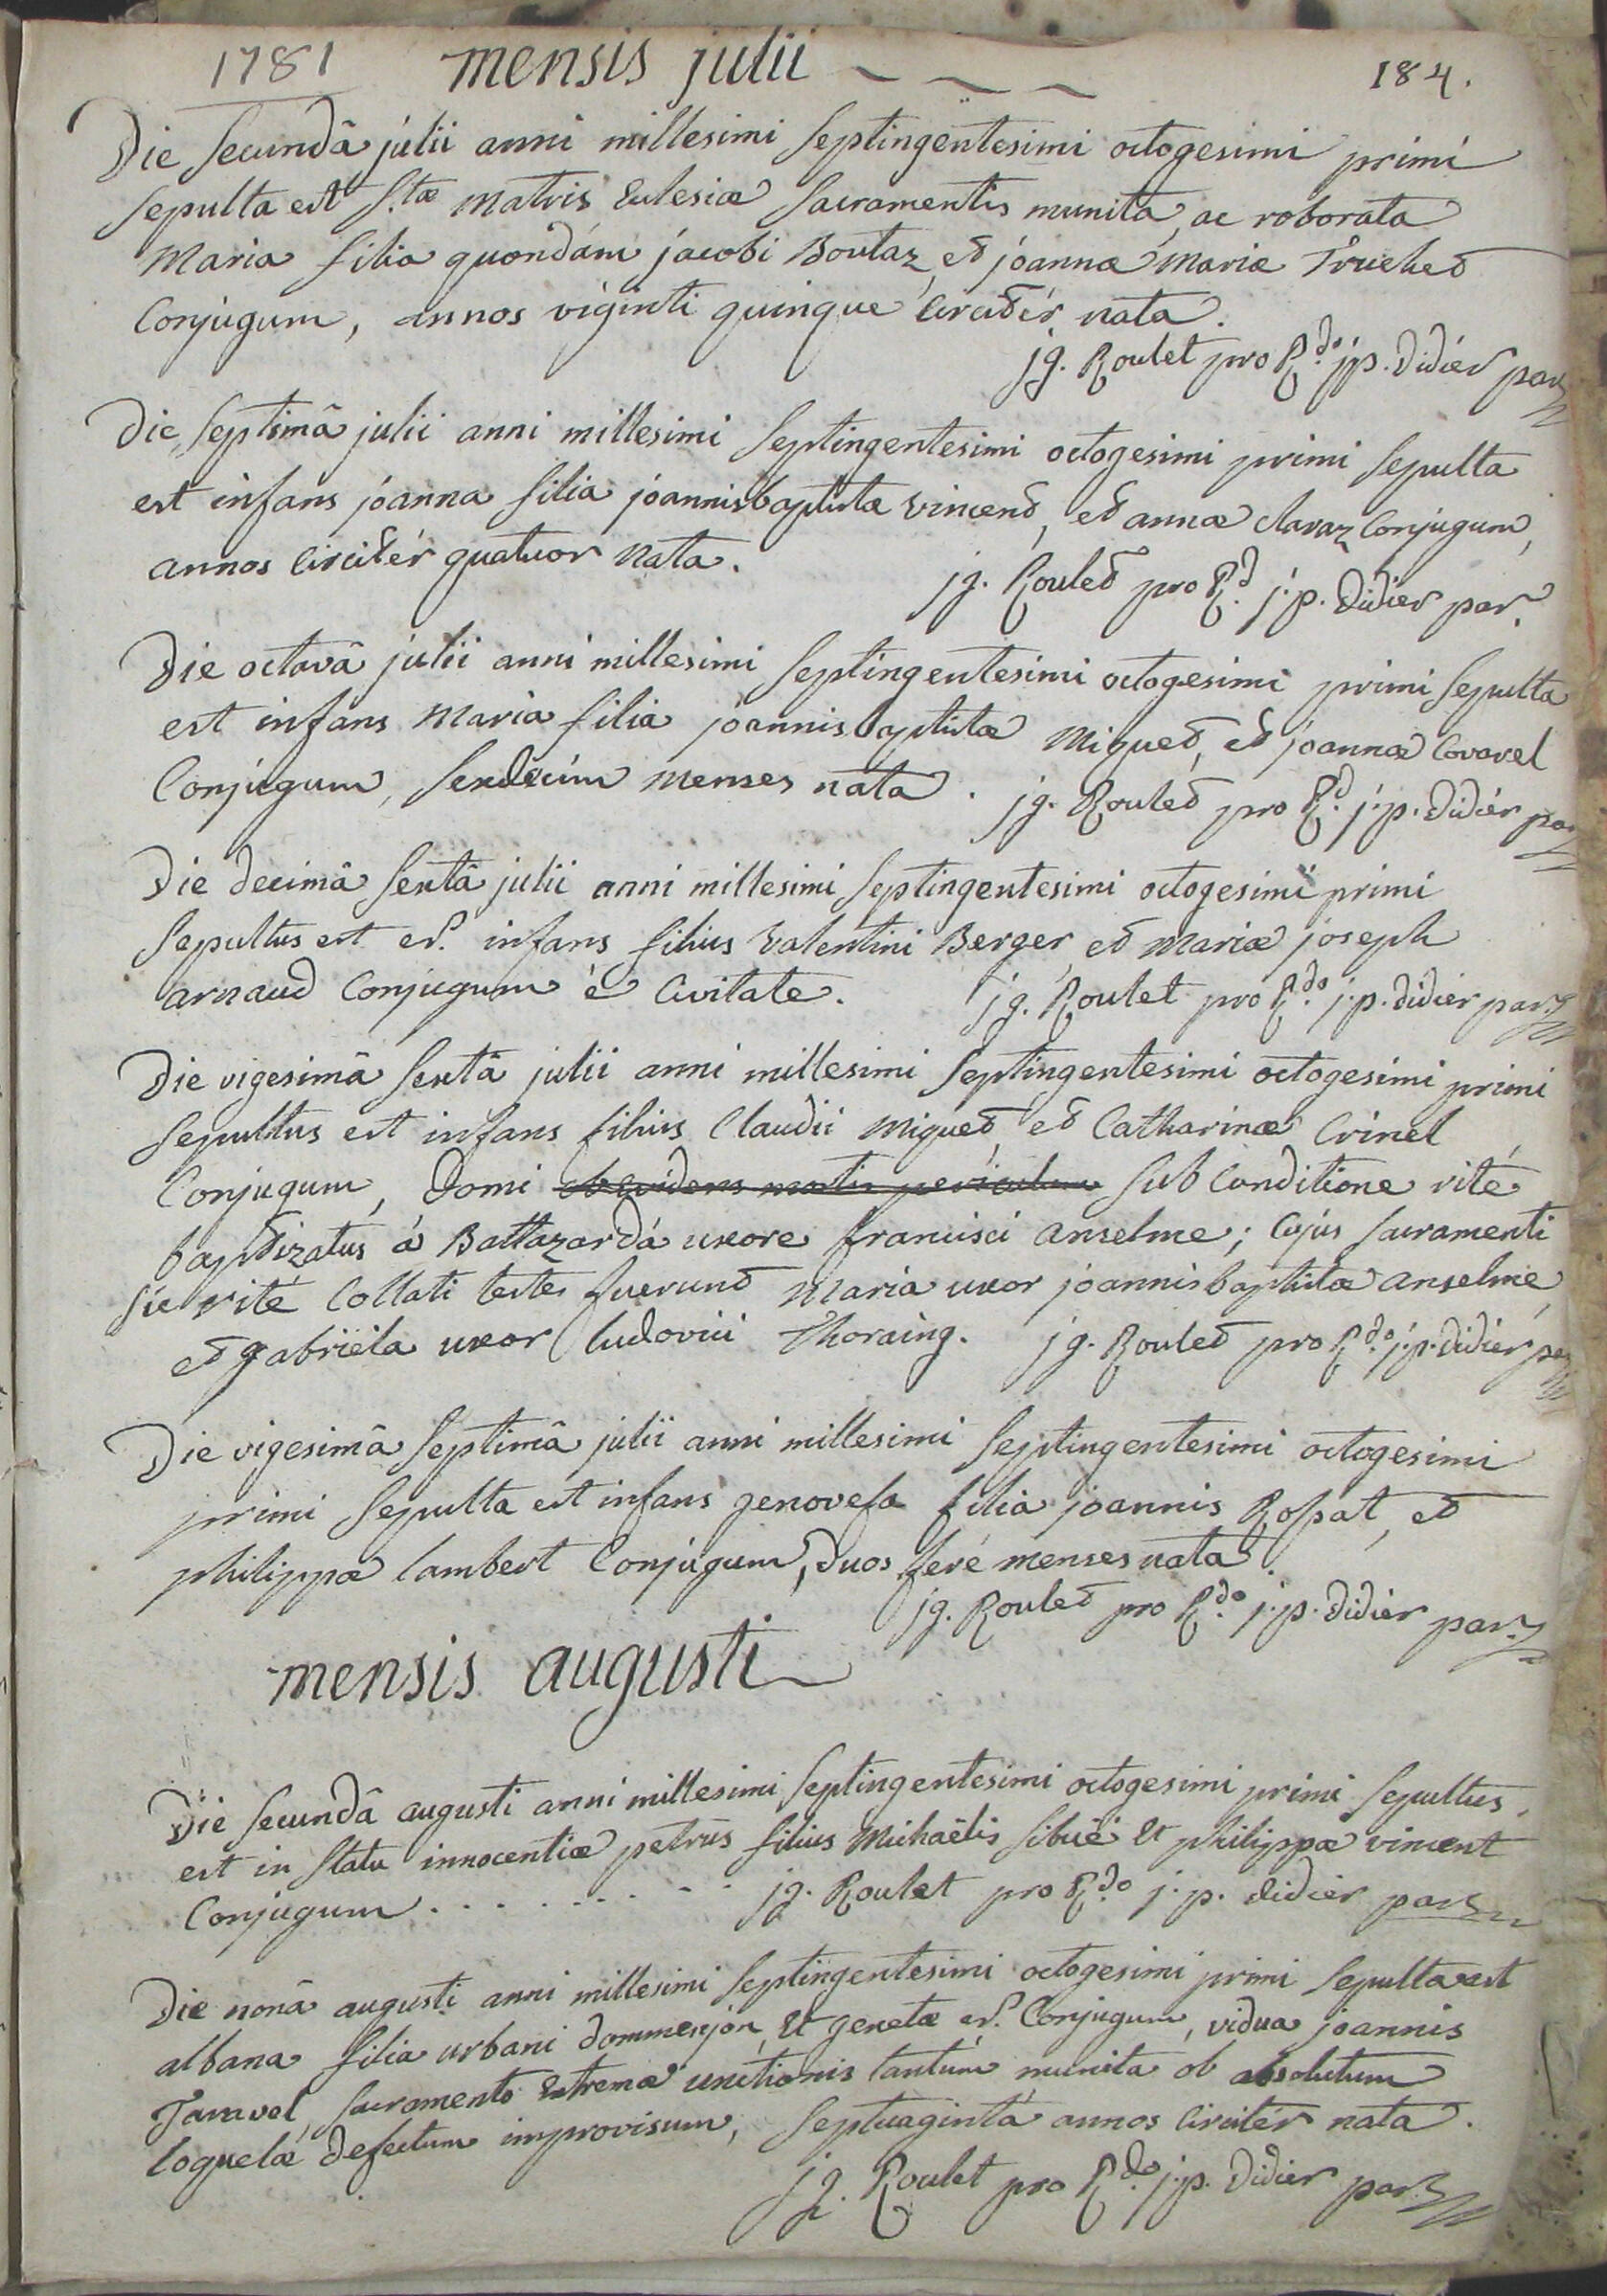 1781 mensis julii 184.
Die secundâ julii anni millesimi septingentesimi octogesimi primi
sepulta est S.tæ matris Eclesiæ sacramentis munita, ac roborata
maria filia quondám jacobi Boulaz, et joannæ mariæ Truchet
Conjugum, annos viginti quinque circitér nata.
jg. Roulet pro R.do j.p. didiér par
die septimâ julii anni millesimi septingentesimi octogesimi primi sepulta
est infans joanna filia joannisbaptistæ vincent, et annæ clavaz Conjugum,
annos circitér quatuor nata.
jg. Roulet pro R.d j.p. didier par.
Die octavâ julii anni millesimi septingentesimi octogesimi primi sepulta
est infans maria filia joannisbaptistæ miguet, et joannæ Covarel
Conjugum, sexdecim menses nata. jg. Roulet pro R.d j.p. didiér par
Die decimâ sextâ julii anni millesimi septingentesimi octogesimi primi
sepultus est ... infans filius valentini Berger, et mariæ joseph
arnaud Conjugum é Civitate. jg. Roulet pro R.do j.p. didiér par
Die vigesimâ sextâ julii anni millesimi septingentesimi octogesimi primi
sepultus est infans filius Claudii miguet, et Catharinæ Crinel
Conjugum, domi ob evidens mortis periculum sub conditione rité
baptizatus á Baltazardá uxore francisci anselme; cujus sacramenti
sic rité Collati testes fuerunt maria uxor joannisbaptistæ anselme,
et gabriëla uxor ludovici Thoraing. jg. Roulet pro R.do j.p. didiér par
Die vigesimâ septimâ julii anni millesimi septingentesimi octogesimi
primi sepulta est infans genovefa filia joannis Rossat, et
philippæ lambert Conjugum, duos feré menses nata.
jg. Roulet pro R.do j.p. didiér par
mensis augusti
Die secundâ augusti anni millesimi septingentesimi octogesimi primi sepultus
est in statu innocentiæ petrus filius Michaëlis sibué Et philippæ vincent
Conjugum . . . . . . . . . jg. Roulet pro R.do j.p. didiér par
Die nonâ augusti anni millesimi septingentesimi octogesimi primi sepulta est
albana filia urbani dommenjon, Et genetæ ... Conjugum, vidua joannis
Taravel, sacramento Extremæ unctionis tantúm munita ob absolutum
loquelæ defectum improvisum, septuaginta annos circitér nata.
jg. Roulet pro R.do j.p. didiér par